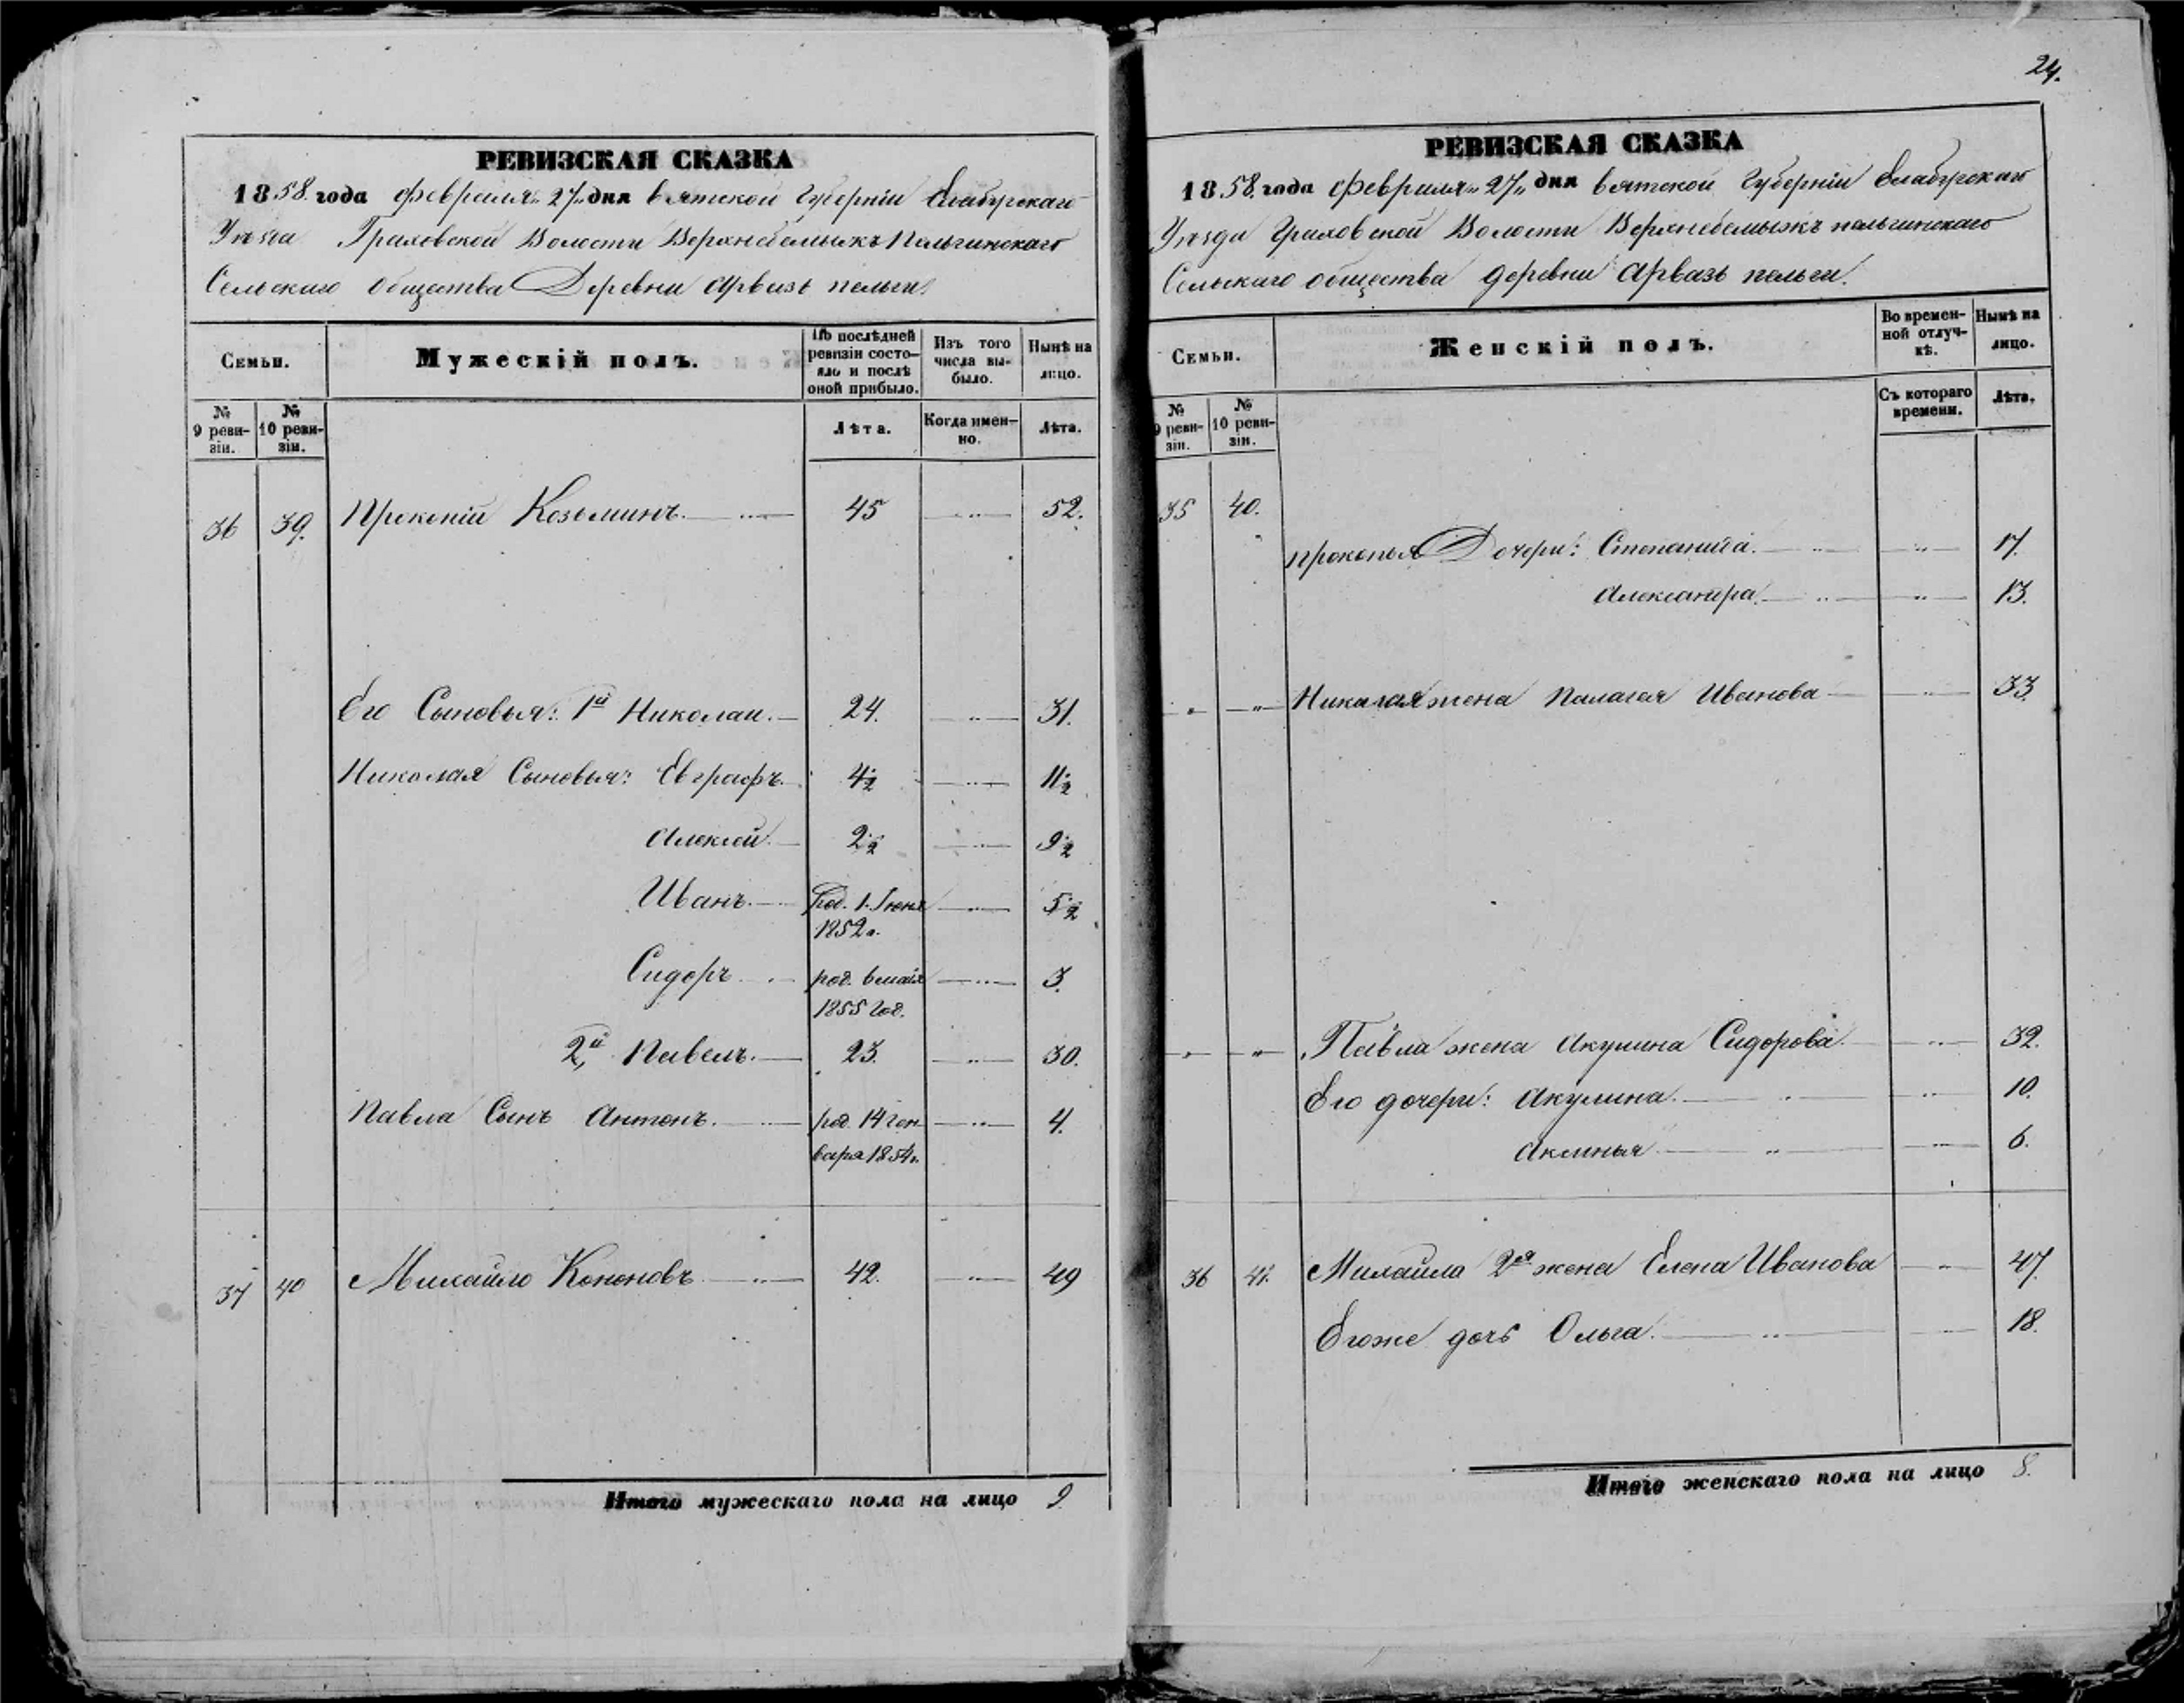 24.
РЕВИЗСКАЯ СКАЗКА
1858. года февраля „27„ дня Вятской Губерніи Елабугскаго
Уѣзда Граховской Волости Верхнебемыжъ Пельгинскаго
Сельскаго Общества Деревни Арвазь пельги.
Семьи.
Мужескій полъ.
По послѣдней ревизіи состояло и послѣ оной прибыло.
Изъ того числа выбыло.
Нынѣ на лицо.
№ 9 ревизіи.
№ 10 ревизіи.
Лѣта.
Когда именно.
Лѣта.
36 39. Прокопій Козьминъ. 45 52.
Его Сыновья: 1й Николай. 24. 31.
Николая Сыновья: Евграфъ. 4½ 11½
Алексей. 2½ 9½
Иванъ. Род. 1. Іюня 5½
1852 г.
Сидоръ род. 6 мая 3.
1855 год.
2й Павелъ. 23. 30.
Павла Сынъ Антонъ. род. 14 ген- 4.
варя 1854 г.
37 40 Михайло Кононовъ 42. 49
Итого мужескаго пола на лицо 9
РЕВИЗСКАЯ СКАЗКА
1858. года февраля „27„ дня Вятской Губерніи Елабугскаго
Уѣзда Граховской Волости Верхнебемыжъ пельгинскаго
Сельскаго общества деревни Арвазь пельги.
Семьи.
Женскій полъ.
Во временной отлучкѣ.
Нынѣ на лицо.
№ 9 ревизіи.
№ 10 ревизіи.
Съ котораго времени.
Лѣта.
35 40.
Прокопья Дочери: Степанида. 17.
Александра. 13.
„ „ Николая жена Палагея Иванова 33.
„ „ Павла жена Акулина Сидорова. 32.
Его дочери: Акулина. 10.
Аксинья 6.
36 41. Михаила 2я жена Елена Иванова 47.
Егоже дочь Ольга. 18.
Итого женскаго пола на лицо 8.